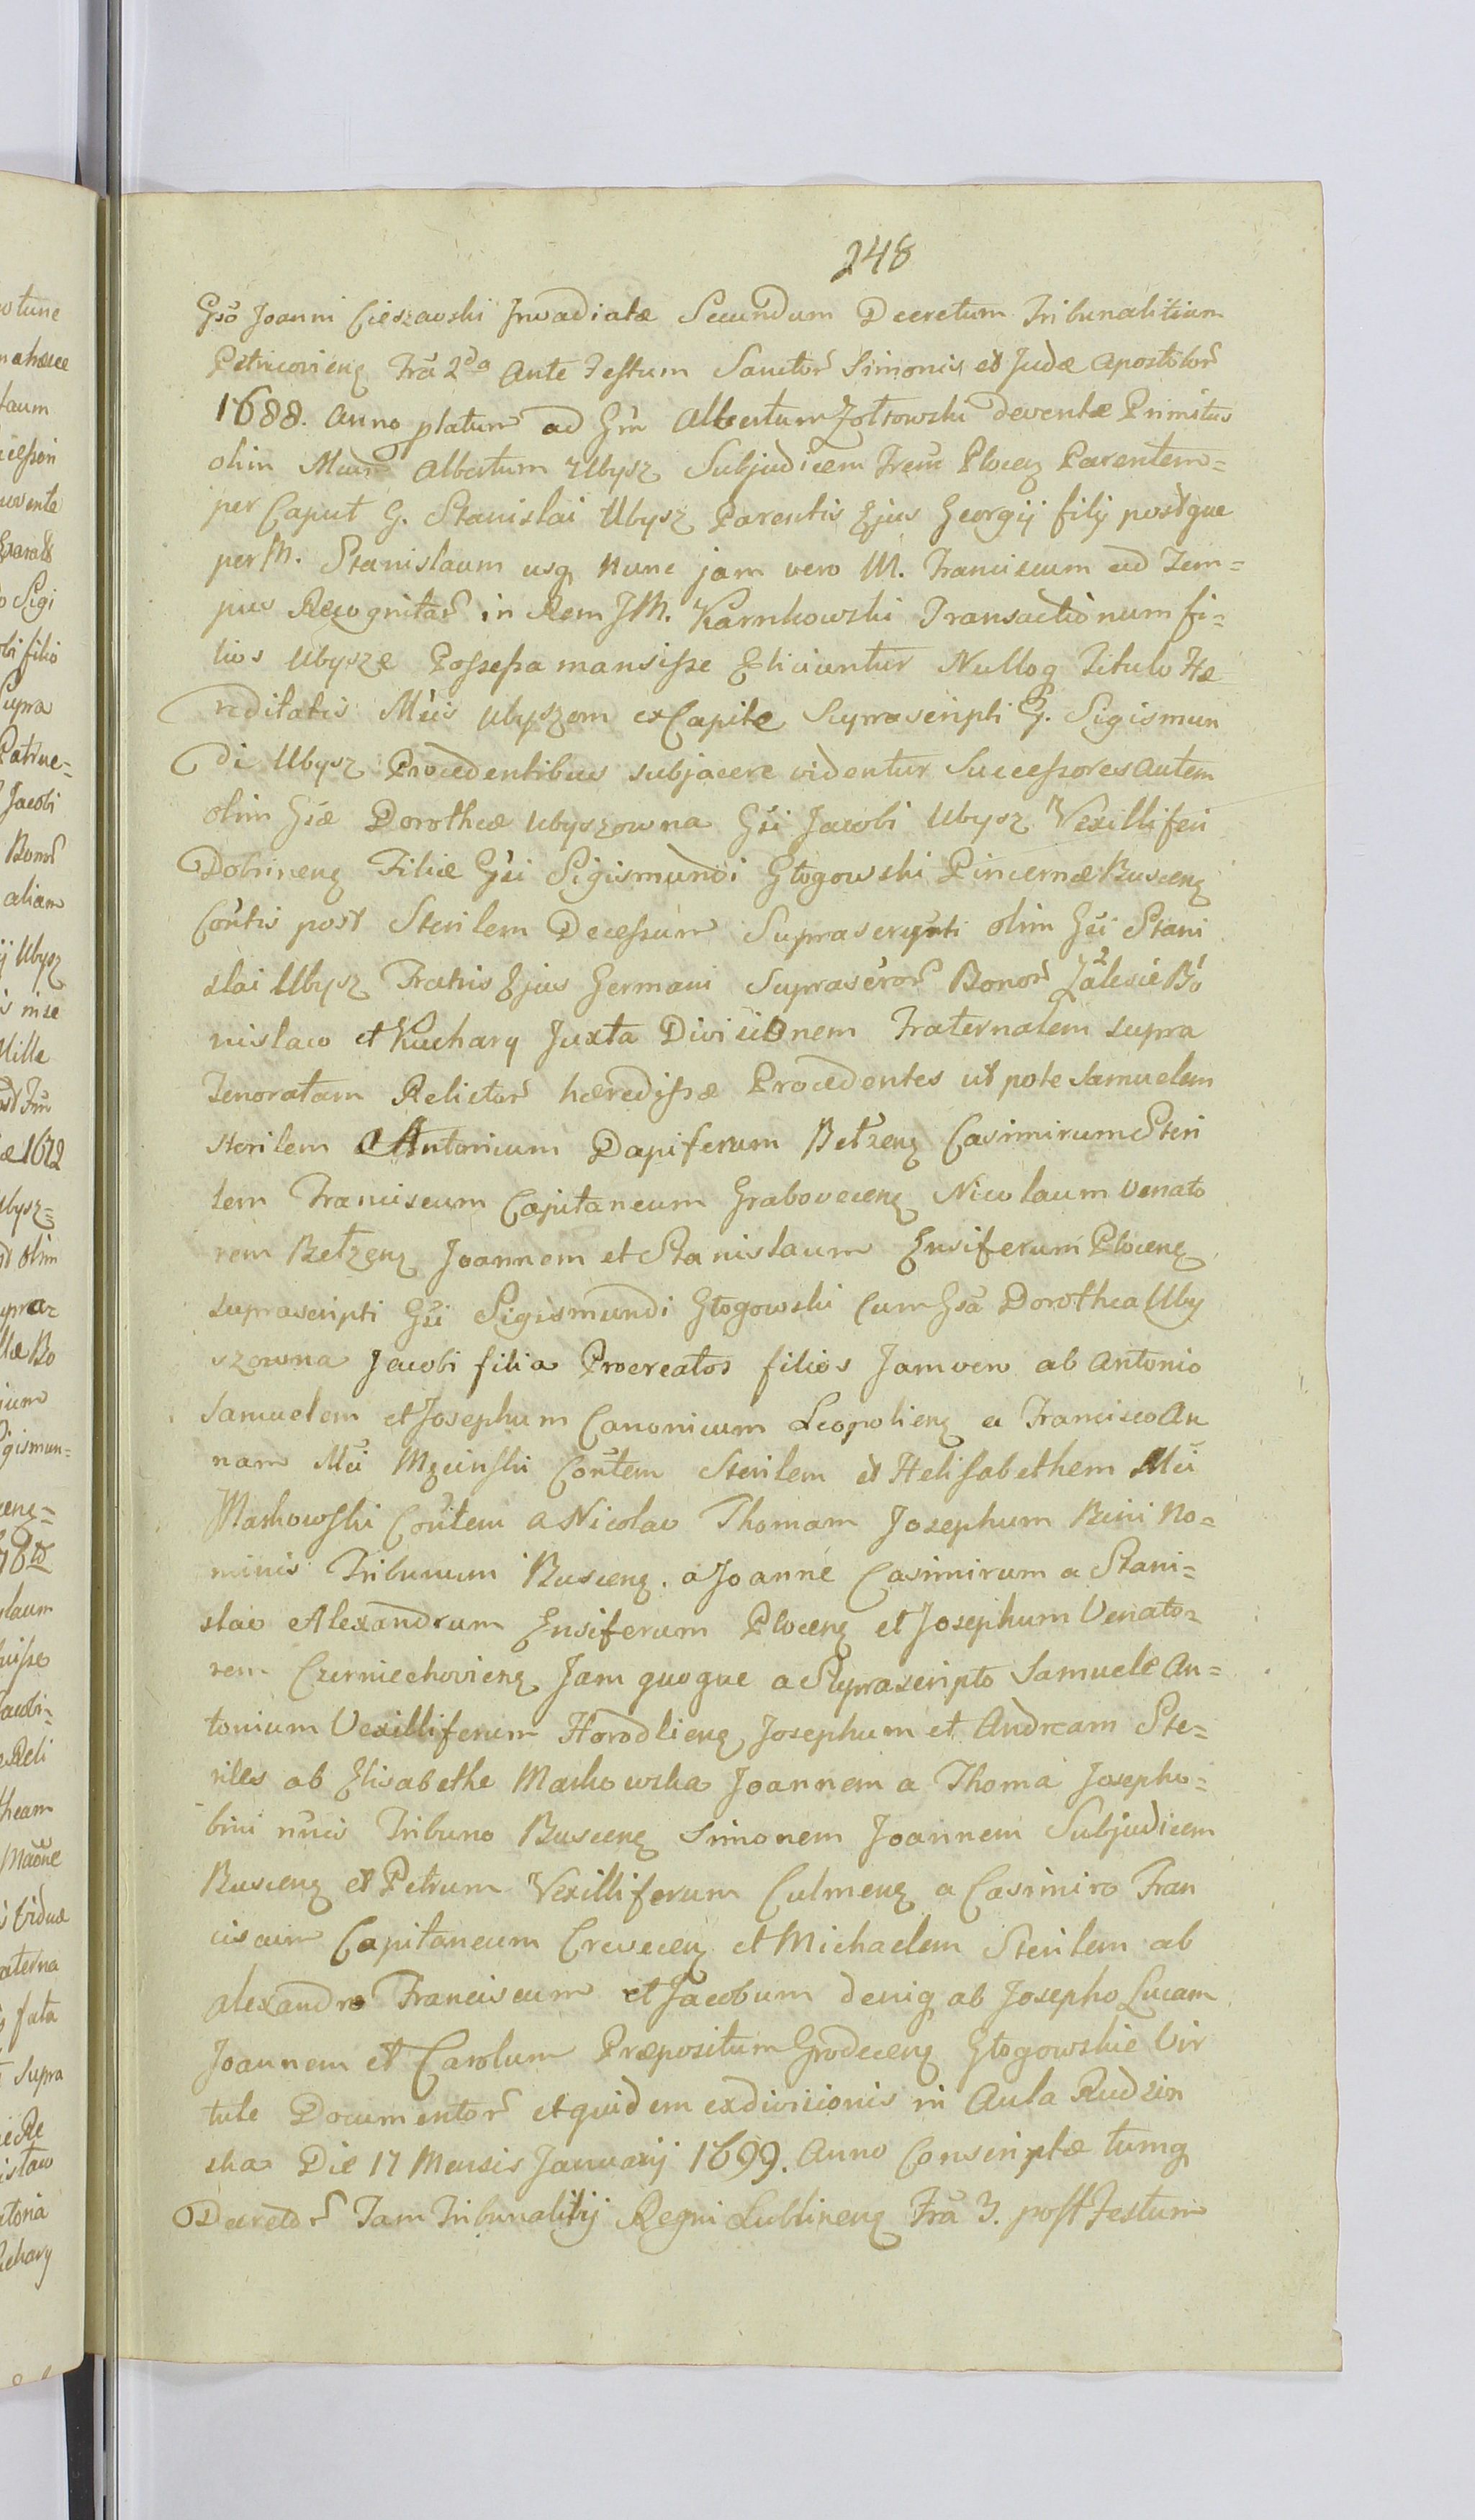 248
Gsō Joanni Cieszawski Invadiatæ Secundum Decretum Tribunalitium
Petricovieng Frā 2da Ante Festum Sanctor Simonis et Judæ Apostolor
1688. Anno platum ad Gm Albertum Zołtowski deventæ Primitus
olim Mum Albertum Ubysz Subjudicem Preuc Ploceng Parentem=
per Caput G. Stanislai Ubysz Parentis Ejus Georgij filij postque
per M. Stanislaum usq nunc jam vero M. Franciscum ad Tem=
pus Recognitar in Rem JM. Karnkowski Transactionum fi=
lios Ubysze Possessa mansisse Eliciuntur Nulloq Titulo Hæ
reditatis Mcis Ubyszom ex Capite Suprascripti G. Sigismun
di Ubysz Procedentibus subjacere videntur Successores autem
olim Gsæ Dorotheæ Ubyszowna Gsi Jacobi Ubysz Vexilliferi
Dobrineng Filiæ Gsi Sigismundi Głogowski Pincernæ Busceng
Coñtis post Sterilem Decessum Suprascripti olim Gsi Stani
slai Ubysz Fratris Ejus Germani Suprascror Bonor Zalesie Bo
nislaw et Kuchary Juxta Divisionem Fraternalem supra
Tenoratam Relictor hæredissæ Procedentes ut pote Samuelem
sterilem Antonium Dapiferum Bełzeng Casimirum Steri
lem Franciscum Capitaneum Graboveceng Nicolaum Venato
rem Bełzeng Joannem et Stanislaum Ensiferum Ploceng
suprascripti Gsi Sigismundi Głogowski cum Gsa Dorothea Uby
szowna Jacobi filia Procreatos filios Jamvero ab Antonio
Samuelem et Josephum Canonicum Leopolieng a Francisco An
nam Mci Mzcinski Coñtem Sterilem et Helisabethem Mci
Maskowski Coñtem a Nicolao Thomam Josephum Bini No=
minis Tribunum Busceng. a Joanne Casimirum a Stani=
slao Alexandrum Ensiferum Ploceng et Josephum Venato=
rem Czerniechovieng Jam quoque a Suprascripto Samuele An=
tonium Vexilliferum Horodlieng Josephum et Andream Ste=
riles ab Elisabethe Maskowska Joannem a Thoma Josepho=
bini nñis Tribuno Busceng Simonem Joannem Subjudicem
Busceng et Petrum Vexilliferum Culmeng a Casimiro Fran
ciscum Capitaneum Creveceng et Michaelem Sterilem ab
Alexandro Franciscum et Jacobum deniq ab Josepho Lucam
Joannem et Carolum Præpositum Grodeceng Głogowskie Vir
tute Documentor et quidem ex divisionis in Aula Rudzin
ska Die 17 Mensis Januarij 1699. Anno Conscriptæ tumq
Decretor Tam Tribunalitij Regni Lublineng Frā 3. post Festum